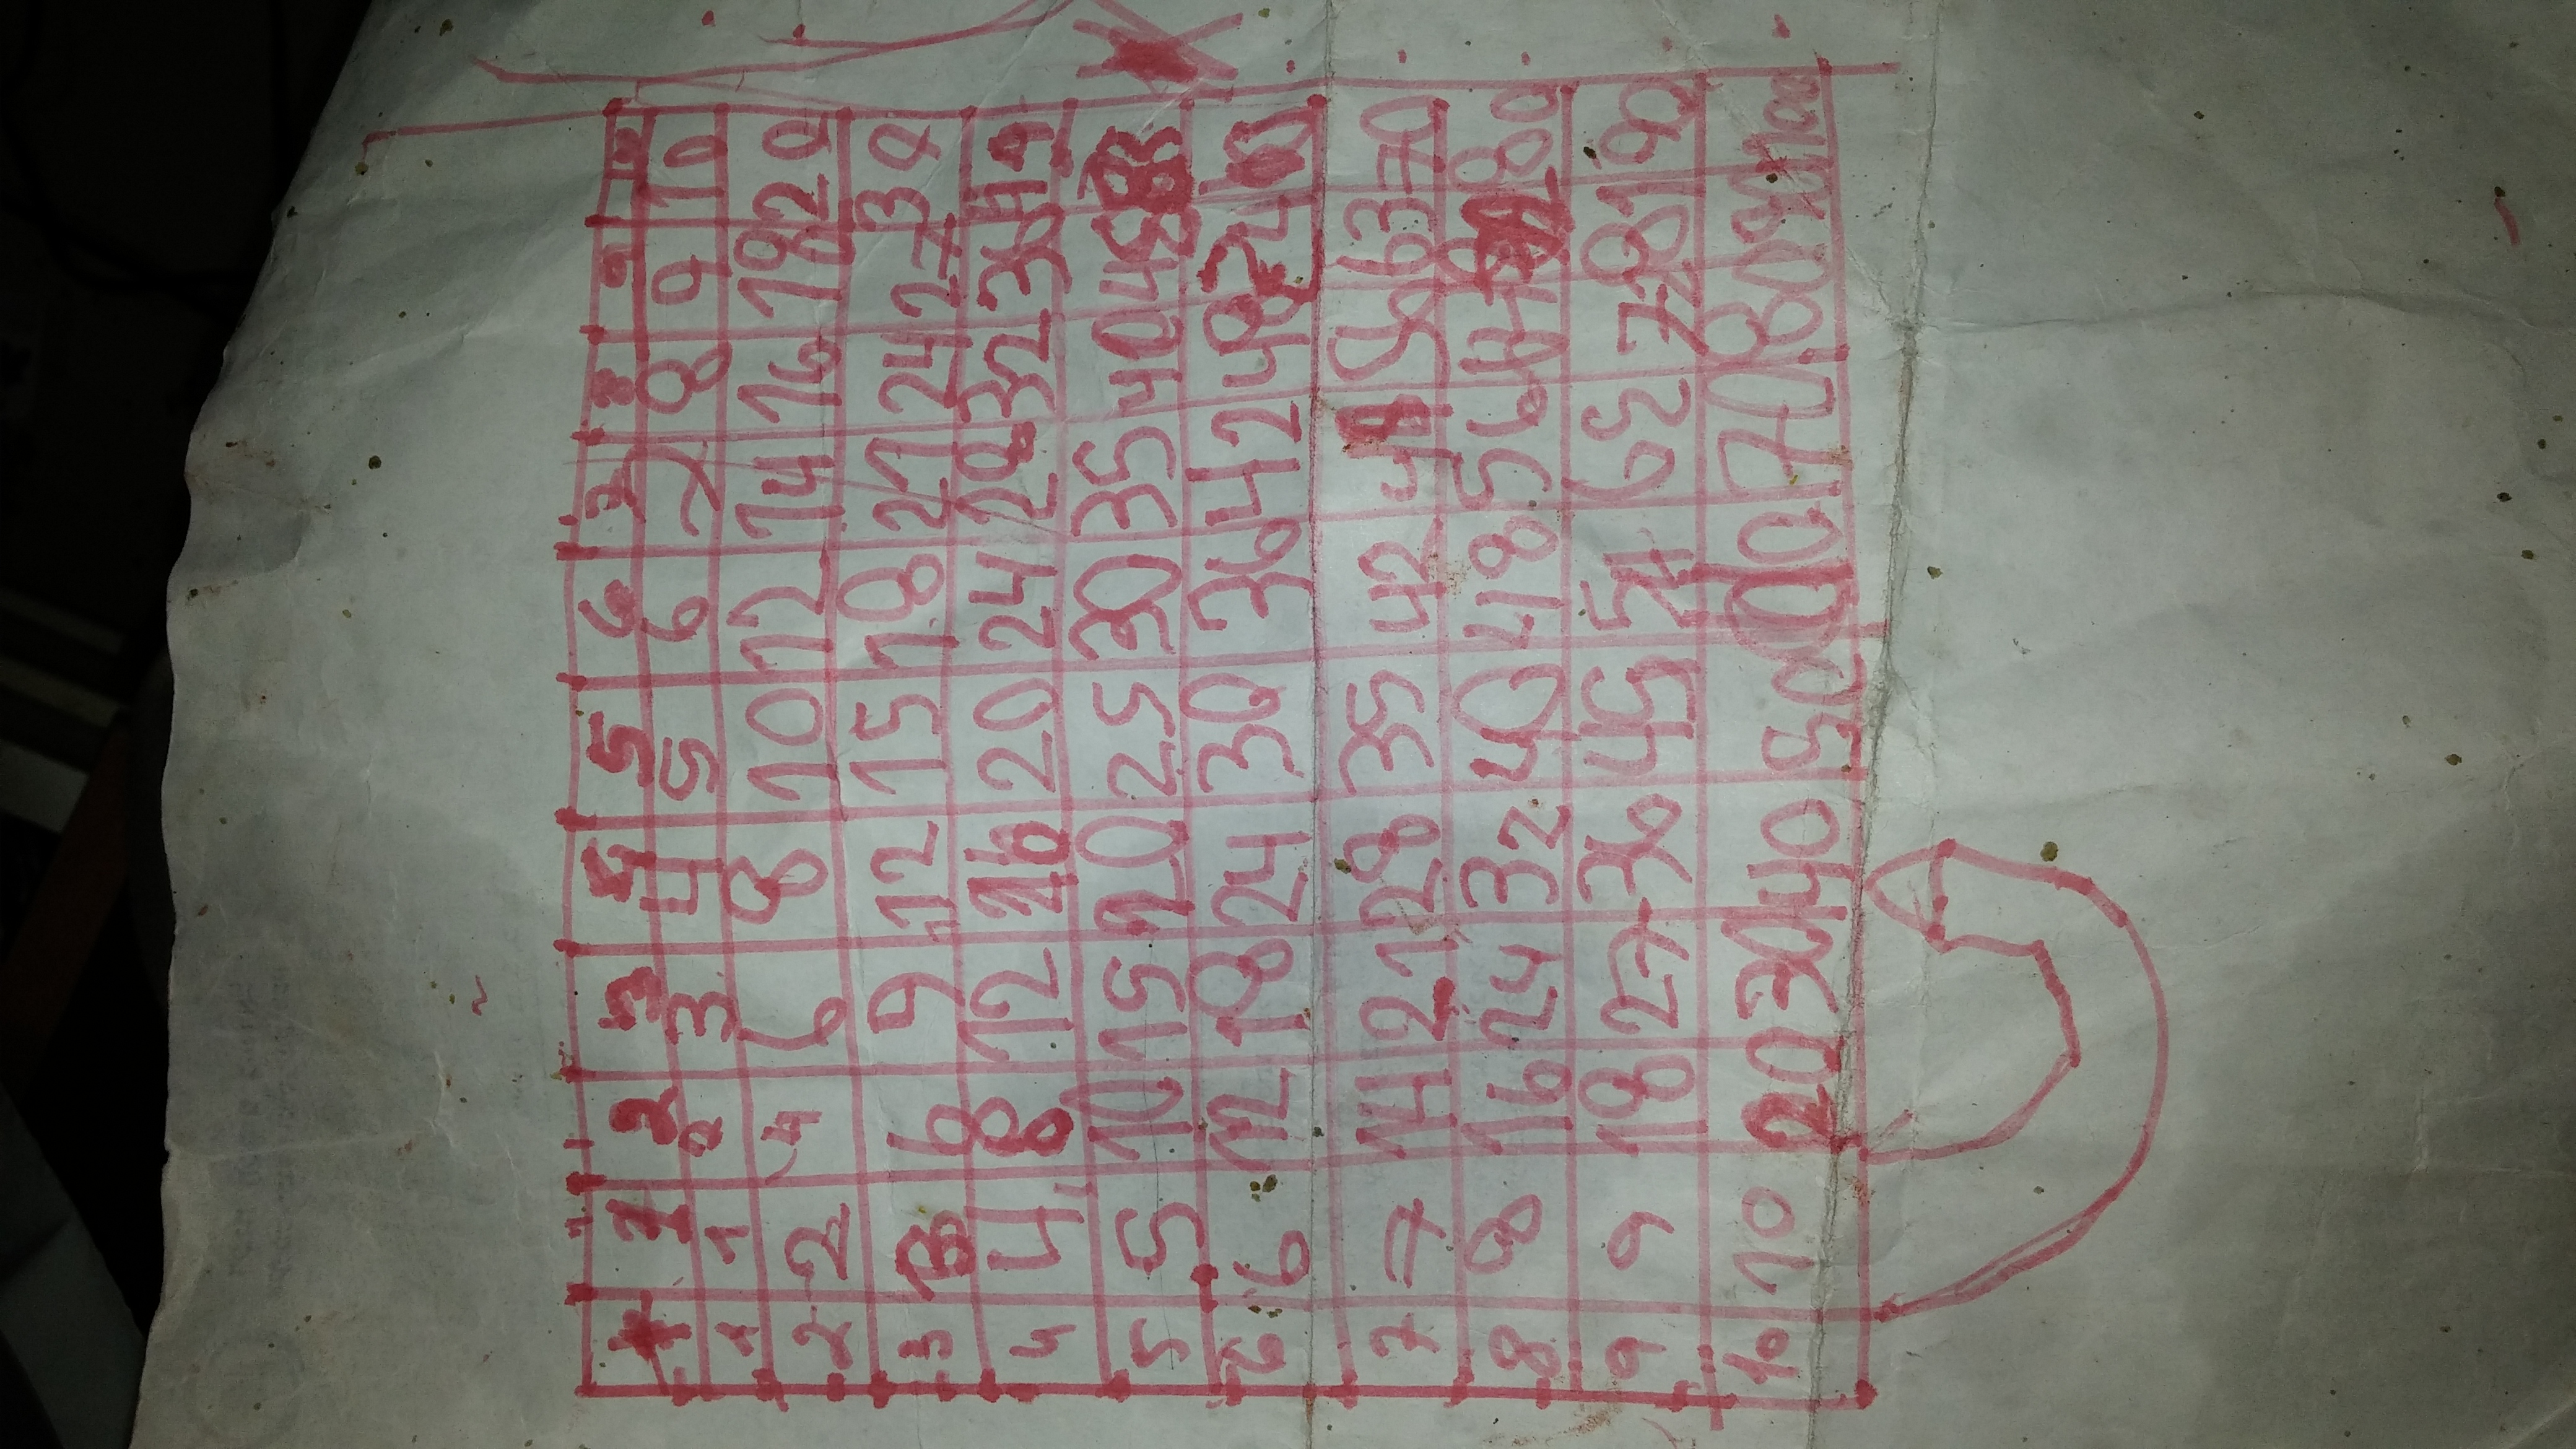 1 2 3 4 5 6 7 8 9 10
1 1 2 3 4 5 6 7 8 9 10
2 2 4 6 8 10 12 14 16 18 20
3 3 6 9 12 15 18 21 24 27 30
4 4 8 12 16 20 24 28 32 36
5 5 10 15 20 25 30 35 40 45
6 6 12 18 24 30 36 42 48
7 7 14 21 28 35 42 56 63 70
8 8 16 24 32 40 48 56 64 80
9 9 18 27 36 45 54 62 72 81 90
10 10 20 30 40 50 70 80 90 100